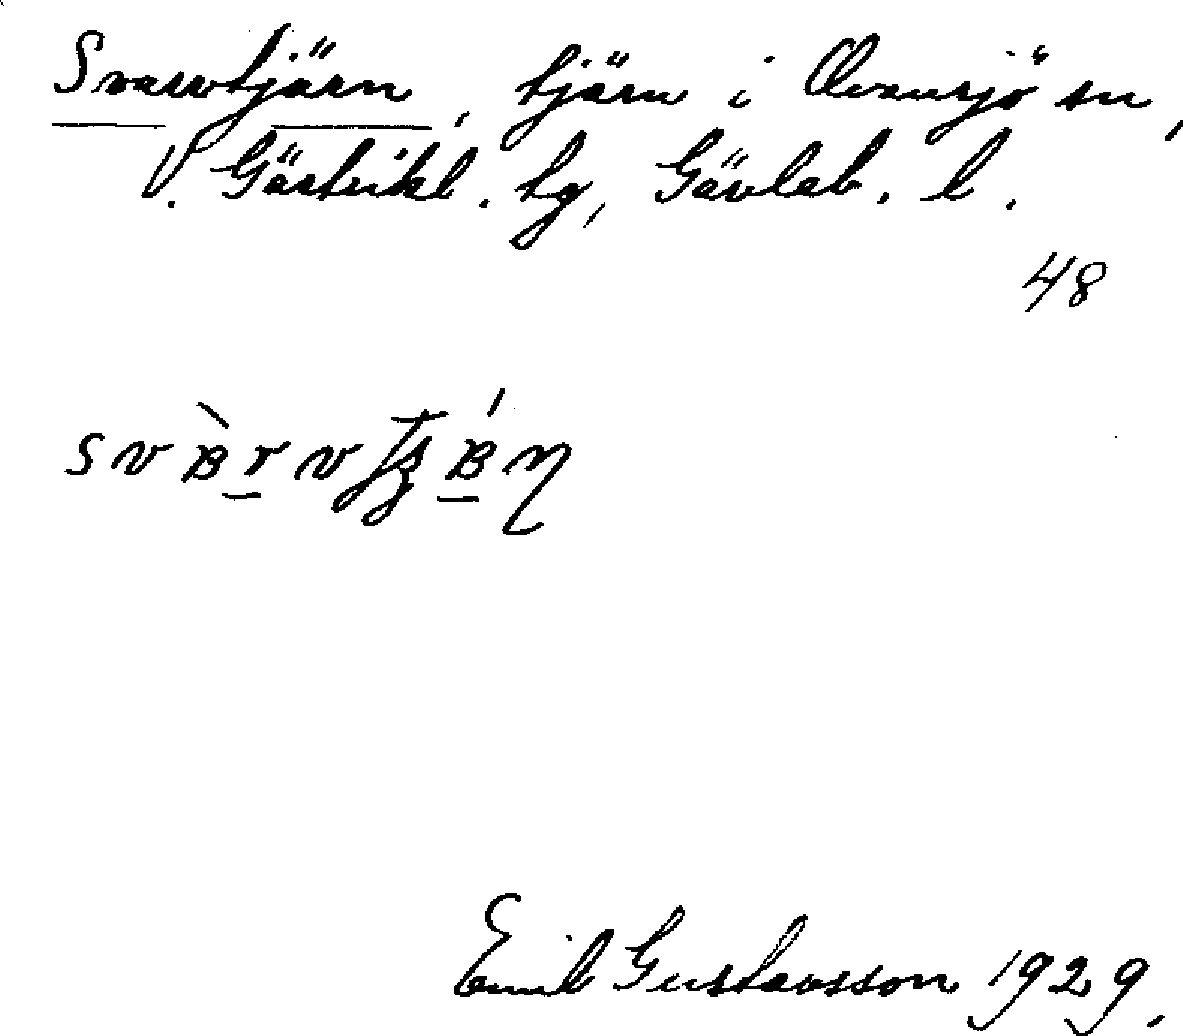 Svarvtjärn, tjärn i Ovansjö sn,
V. Gästrikl. tg, Gävleb. l.
48
Emil Gustavsson 1929.